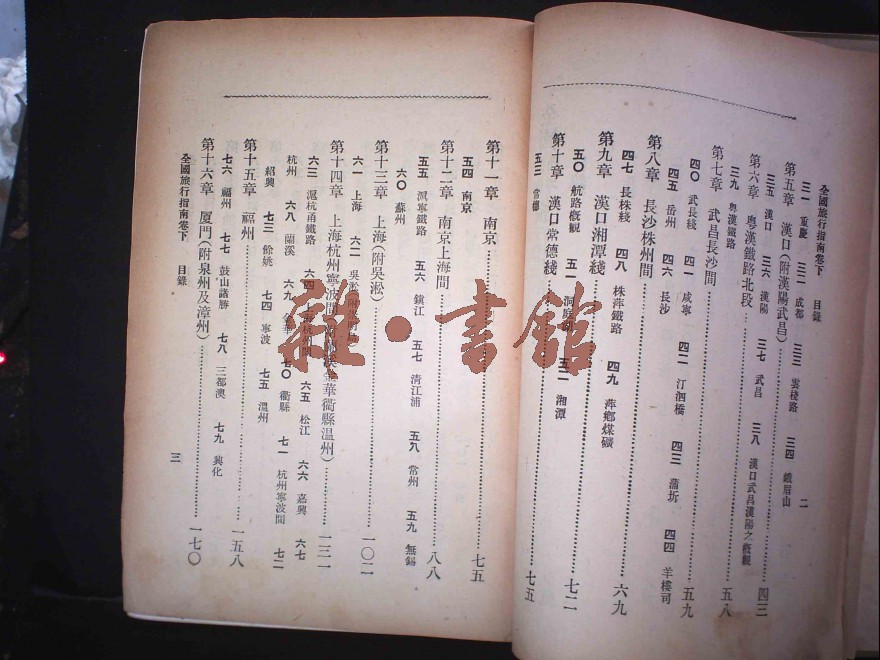 全國旅行指南卷下　目錄　二
三一　重慶　三二　成都　三三　雲棧路　三四　峨眉山
第五章　漢口(附漢陽武昌)……四三
三五　漢口　三六　漢陽　三七　武昌　三八　漢口武昌漢陽之概觀
第六章　粵漢鐵路北段……五八
三九　粵漢鐵路
第七章　武昌長沙間……五九
四〇　武長綫　四一　咸寧　四二　汀泗橋　四三　蒲圻　四四　羊樓司
四五　岳州　四六　長沙
第八章　長沙株州間……六九
四七　長株綫　四八　株萍鐵路　四九　萍鄉煤礦
第九章　漢口湘潭綫……七二
五〇　航路概觀　五一　洞庭　五二　湘潭
第十章　漢口常德綫……七五
五三　常德
第十一章　南京……七五
五四　南京
第十二章　南京上海間……八八
五五　滬寧鐵路　五六　鎮江　五七　清江浦　五八　常州　五九　無錫
六〇　蘇州
第十三章　上海(附吳淞)……一〇二
六一　上海　六二　吳淞
第十四章　上海杭州寧波間　金華衢縣温州)……一三一
六三　滬杭甬鐵路　六四　杭州間　六五　松江　六六　嘉興　六七
杭州　六八　蘭溪　六九　金華　七〇　衢縣　七一　杭州寧波間　七二
紹興　七三　餘姚　七四　寧波　七五　溫州
第十五章　福州……一五八
七六　福州　七七　鼓山諸勝　七八　三都澳　七九　興化
第十六章　厦門(附泉州及漳州)……一七〇
全國旅行指南卷下　目錄　三
雜·書館